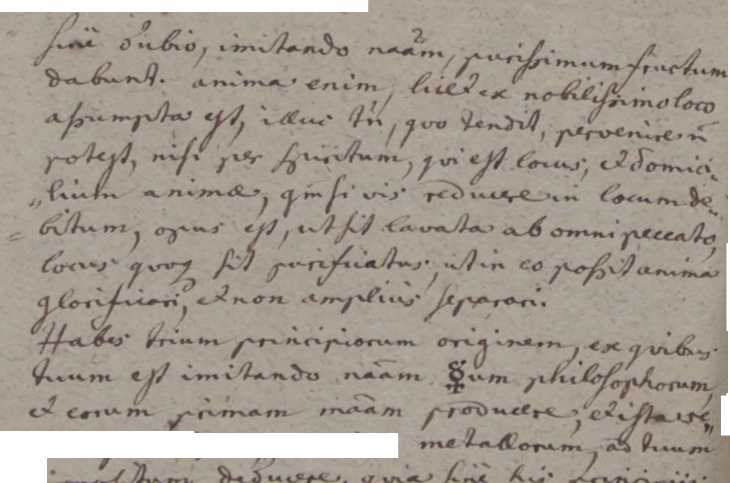 sine dubio, imitando naãm, purissimum fructum
dabunt. anima enim, licet ex nobilissimo loco
assumpta est, illuc tñ, quo tendit, pervenire ñ
potest, nisi per spiritum, qui est locus, et domici„
„lium animæ, quem si vis reducere in locum de„
bitum, opus est, ut sit lavata ab omni peccato,
locus quoq sit purificatus, ut in eo possit anima
glorificari, et non amplius separari.
Habes trium principiorum originem, ex quibus
tuum est imitando naãm ☿um philosophorum,
et eorum primam maãm producere, et ista re„
metallorum, ad tuum
deducere, quia sine his principiis